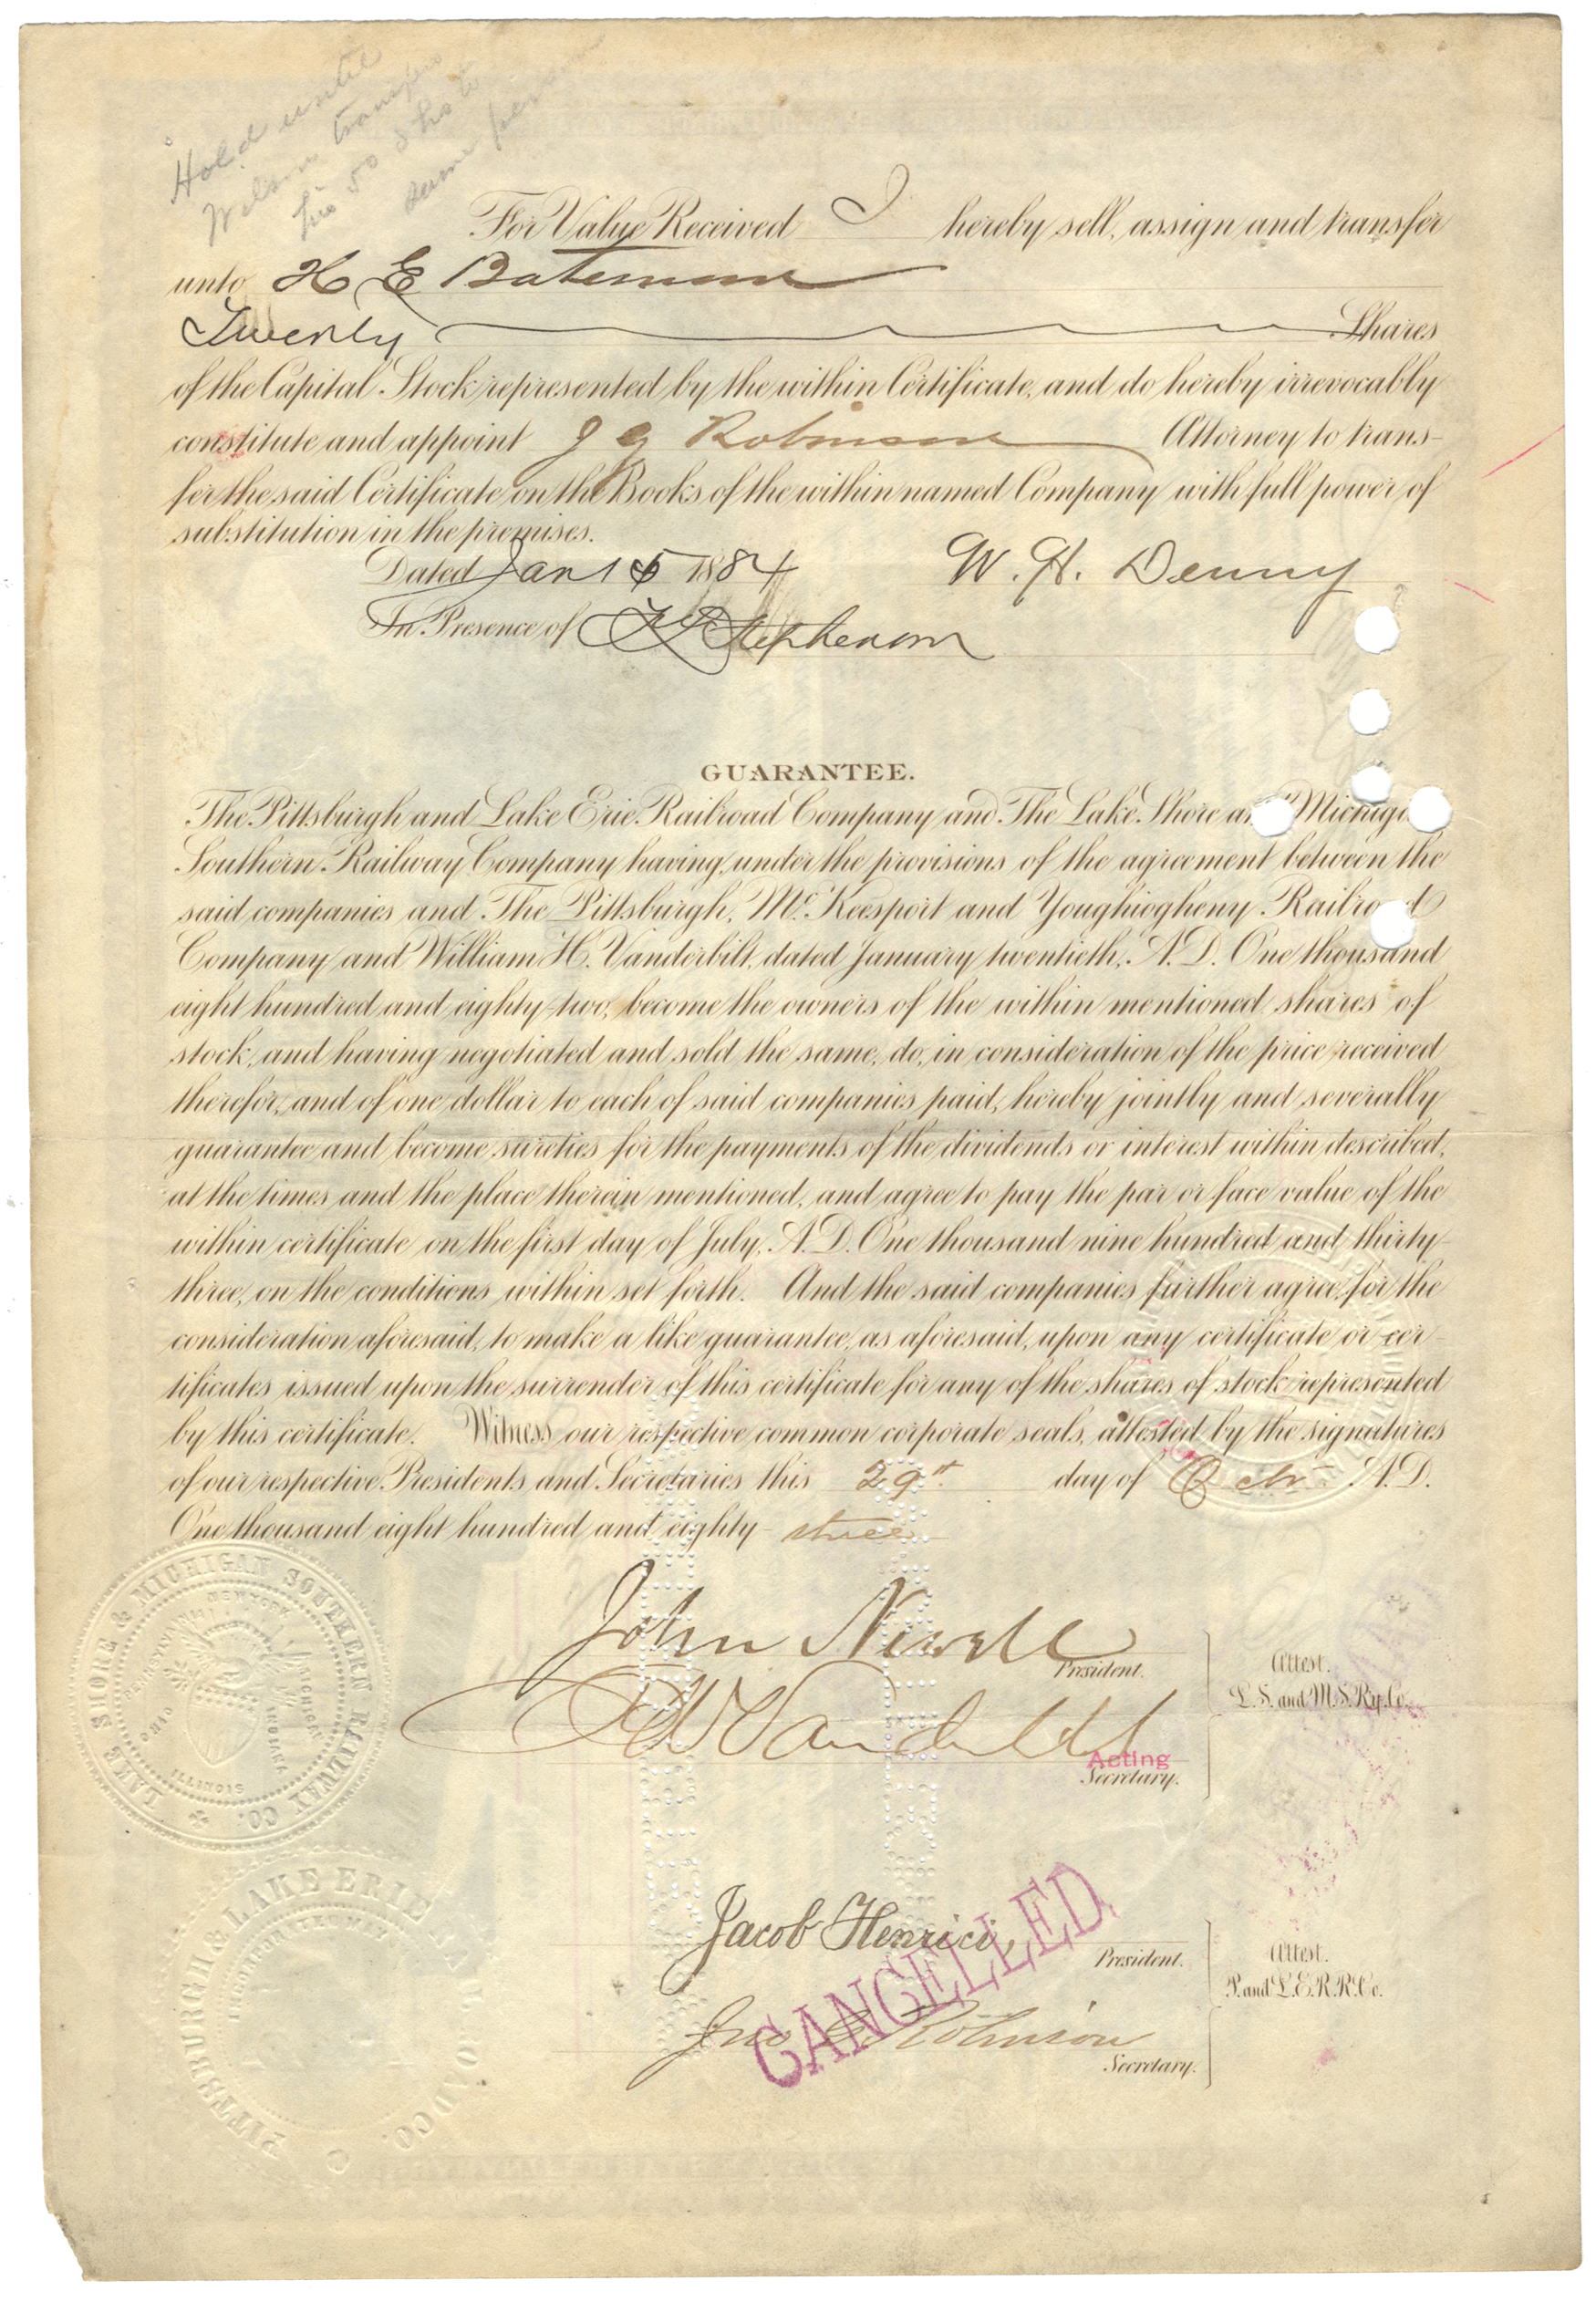 Hold until
Wilson transfers
his 50 shs to
same person
For Value Received I hereby sell, assign and transfer
unto H E Bateman
Twenty Shares
of the Capital Stock represented by the within Certificate, and do hereby irrevocably
constitute and appoint J G Robinson Attorney to trans-
fer the said Certificate on the Books of the within named Company with full power of
substitution in the premises.
Dated Jan 15 1884 W. H. Denny
In Presence of Stephenson
GUARANTEE.
The Pittsburgh and Lake Erie Railroad Company and The Lake Shore and Michigan
Southern Railway Company having, under the provisions of the agreement between the
said companies and The Pittsburgh, McKeesport and Youghiogheny Railroad
Company and William H. Vanderbilt, dated January twentieth, A.D. One thousand
eight hundred and eighty-two, become the owners of the within mentioned shares of
stock, and having negotiated and sold the same, do, in consideration of the price received
therefor, and of one dollar to each of said companies paid, hereby jointly and severally
guarantee and become sureties for the payments of the dividends or interest within described,
at the times and the place therein mentioned, and agree to pay the par or face value of the
within certificate on the first day of July, A.D. One thousand nine hundred and thirty-
three, on the conditions within set forth. And the said companies further agree, for the
consideration aforesaid, to make a like guarantee, as aforesaid, upon any certificate or cer-
tificates issued upon the surrender of this certificate for any of the shares of stock represented
by this certificate. Witness our respective common corporate seals, attested by the signatures
of our respective Presidents and Secretaries this 29th day of Octr. A.D.
One thousand eight hundred and eighty-three
LAKE SHORE & MICHIGAN SOUTHERN RAILWAY CO.
NEW YORK
PENNSYLVANIA
MICHIGAN
OHIO
INDIANA
ILLINOIS
John Newell
President.
Attest.
L. S. and M. S. Ry. Co.
E W Vanderbilt
Acting
Secretary.
PITTSBURGH & LAKE ERIE RAILROAD CO.
INCORPORATED MAY
Jacob Henrici,
President.
Attest.
P. and L. E. R. R. Co.
CANCELLED
Jno G Robinson
Secretary.